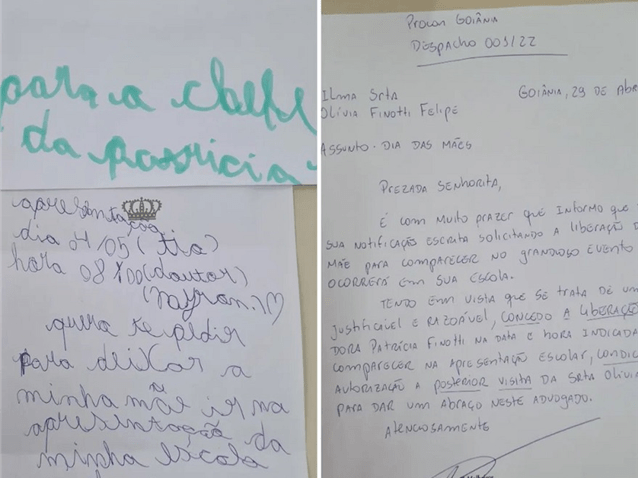 para a chefe
da patricia
apresentação
dia 04/05 (tia)
hora 08:00 (doutor)
queria te pedir
para deixar a
minha mãe ir na
apresentação da
minha escola
PROCON GOIÂNIA
DESPACHO 001/22
ILMA SRTA
GOIÂNIA, 29 DE ABR
OLÍVIA FINOTTI FELIPE
ASSUNTO - DIA DAS MÃES
PREZADA SENHORITA,
É COM MUITO PRAZER QUE INFORMO QUE
SUA NOTIFICAÇÃO ESCRITA SOLICITANDO A LIBERAÇÃO D
MÃE PARA COMPARECER NO GRANDIOSO EVENTO
OCORRERÁ EM SUA ESCOLA.
TENDO EM VISTA QUE SE TRATA DE UM
JUSTIFICÁVEL E RAZOÁVEL, CONCEDO A LIBERAÇÃO
DORA PATRÍCIA FINOTTI NA DATA E HORA INDICADA
COMPARECER NA APRESENTAÇÃO ESCOLAR, CONDIC
AUTORIZAÇÃO A POSTERIOR VISITA DA SRTA OLÍVI
PARA DAR UM ABRAÇO NESTE ADVOGADO.
ATENCIOSAMENTE